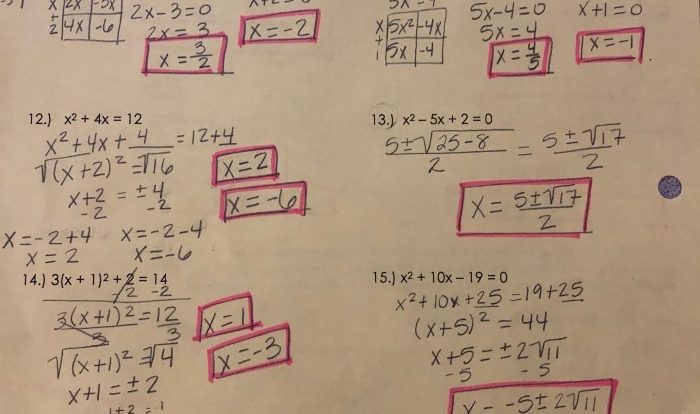 x 2x -3x
+
2 4x -6
2x-3=0
2x = 3
x = 3/2
x = -2
x 5x² -4x
+
1 5x -4
5x-4=0
5x=4
x = 4/5
x+1=0
x = -1
12.) x² + 4x = 12
x² + 4x + 4 = 12+4
√(x+2)² = √16
x+2 = ±4
-2 -2
x = -2+4 x = -2-4
x = 2 x = -6
x=2
x=-6
13.) x² – 5x + 2 = 0
5±√25-8 / 2 = 5±√17 / 2
x = 5±√17 / 2
14.) 3(x + 1)² + 2 = 14
-2 -2
3(x+1)² = 12
3 3
√(x+1)² = √4
x+1 = ±2
x=1
x=-3
15.) x² + 10x – 19 = 0
x² + 10x + 25 = 19+25
(x+5)² = 44
x+5 = ±2√11
-5 -5
x = -5±2√11